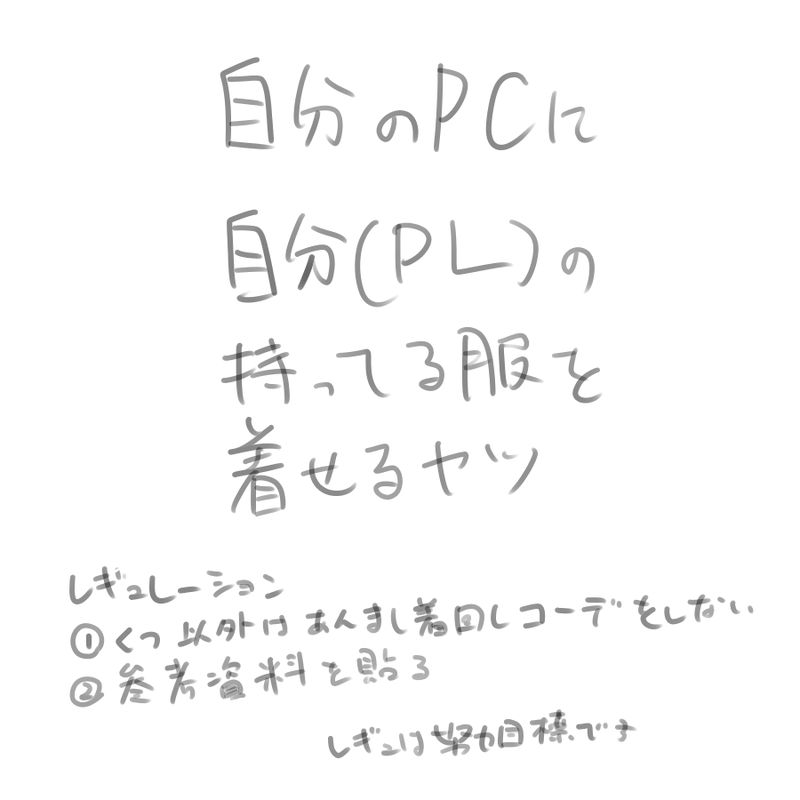 自分のPCに
自分(PL)の
持ってる服を
着せるヤツ
レギュレーション
①くつ以外はあんまし着回しコーデをしない
②参考資料を貼る
レギュは努力目標です